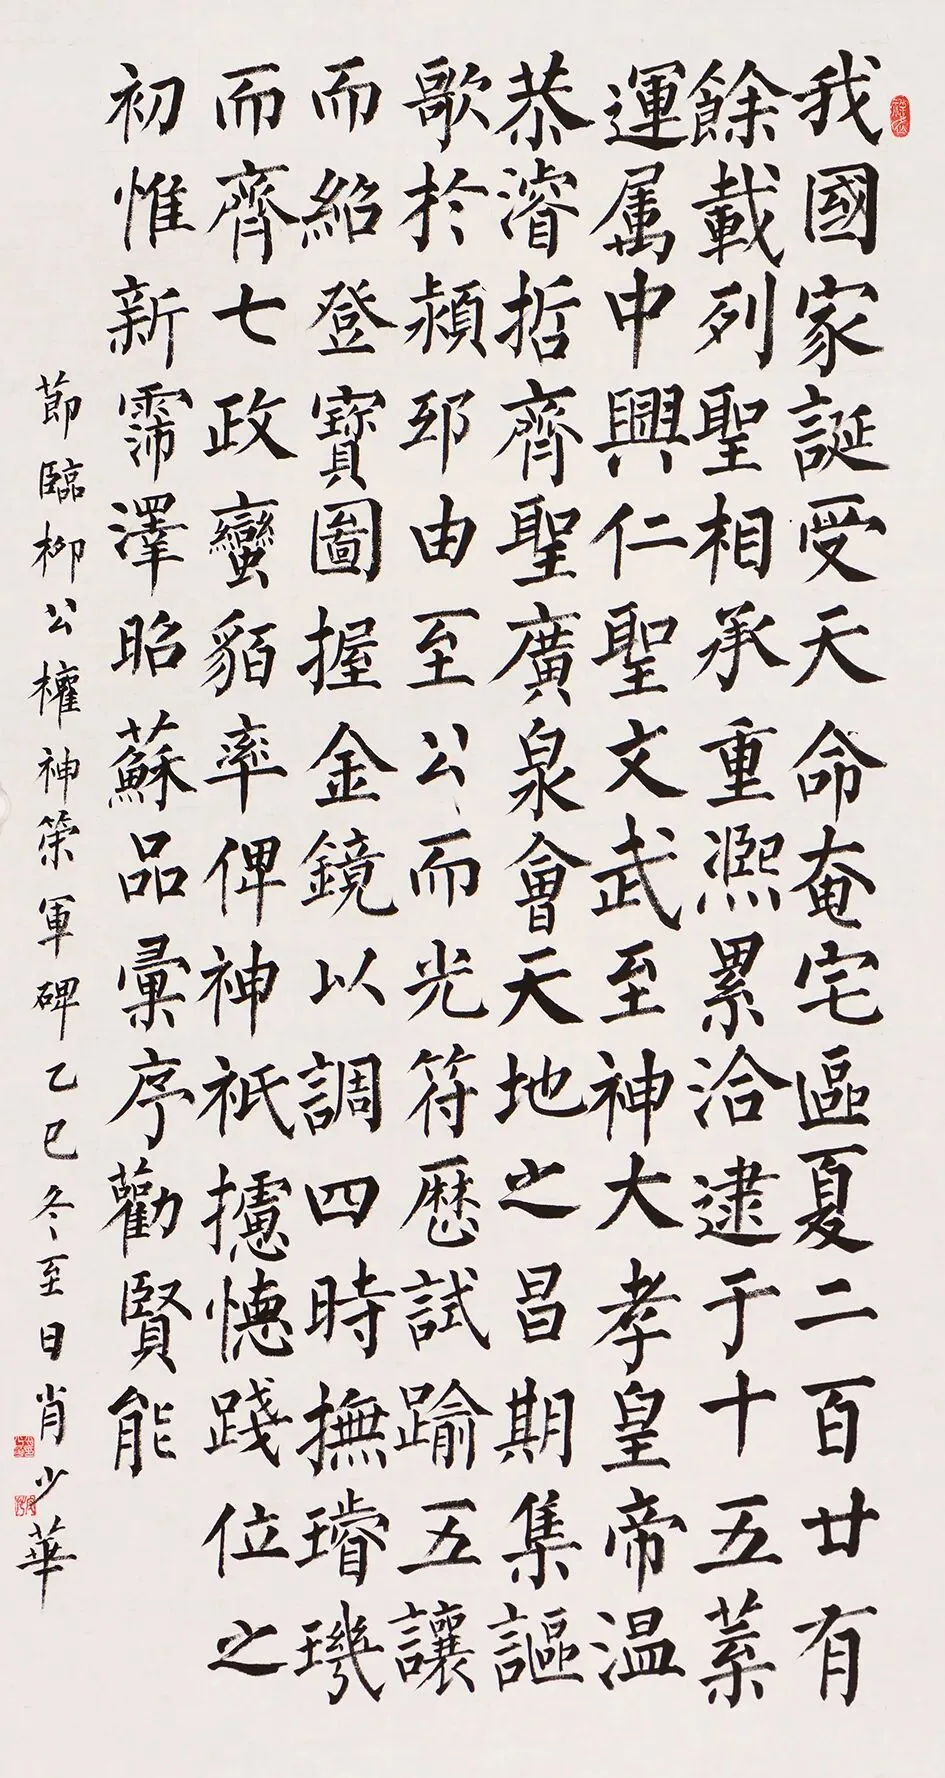 我國家誕受天命奄宅區夏二百廿有
餘載列聖相承重熈累洽逮于十五葉
運属中興仁聖文武至神大孝皇帝温
恭濬哲齊聖廣泉會天地之昌期集謳
歌於潁邸由至公而光符歷試踰五讓
而紹登寶圖握金鏡以調四時撫璿璣
而齊七政蠻貊率俾神祇攄憓踐位之
初惟新霈澤昭蘇品彙序勸賢能
節臨柳公權神策軍碑乙巳冬至日肖少華